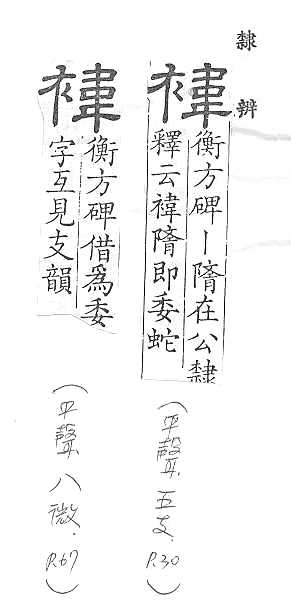 隸辨
褘
衡方碑丨隋在公隸
釋云褘隋即委蛇
(平聲.五支.P.30)
褘
衡方碑借為委
字互見支韻
(平聲.八微.P.67)